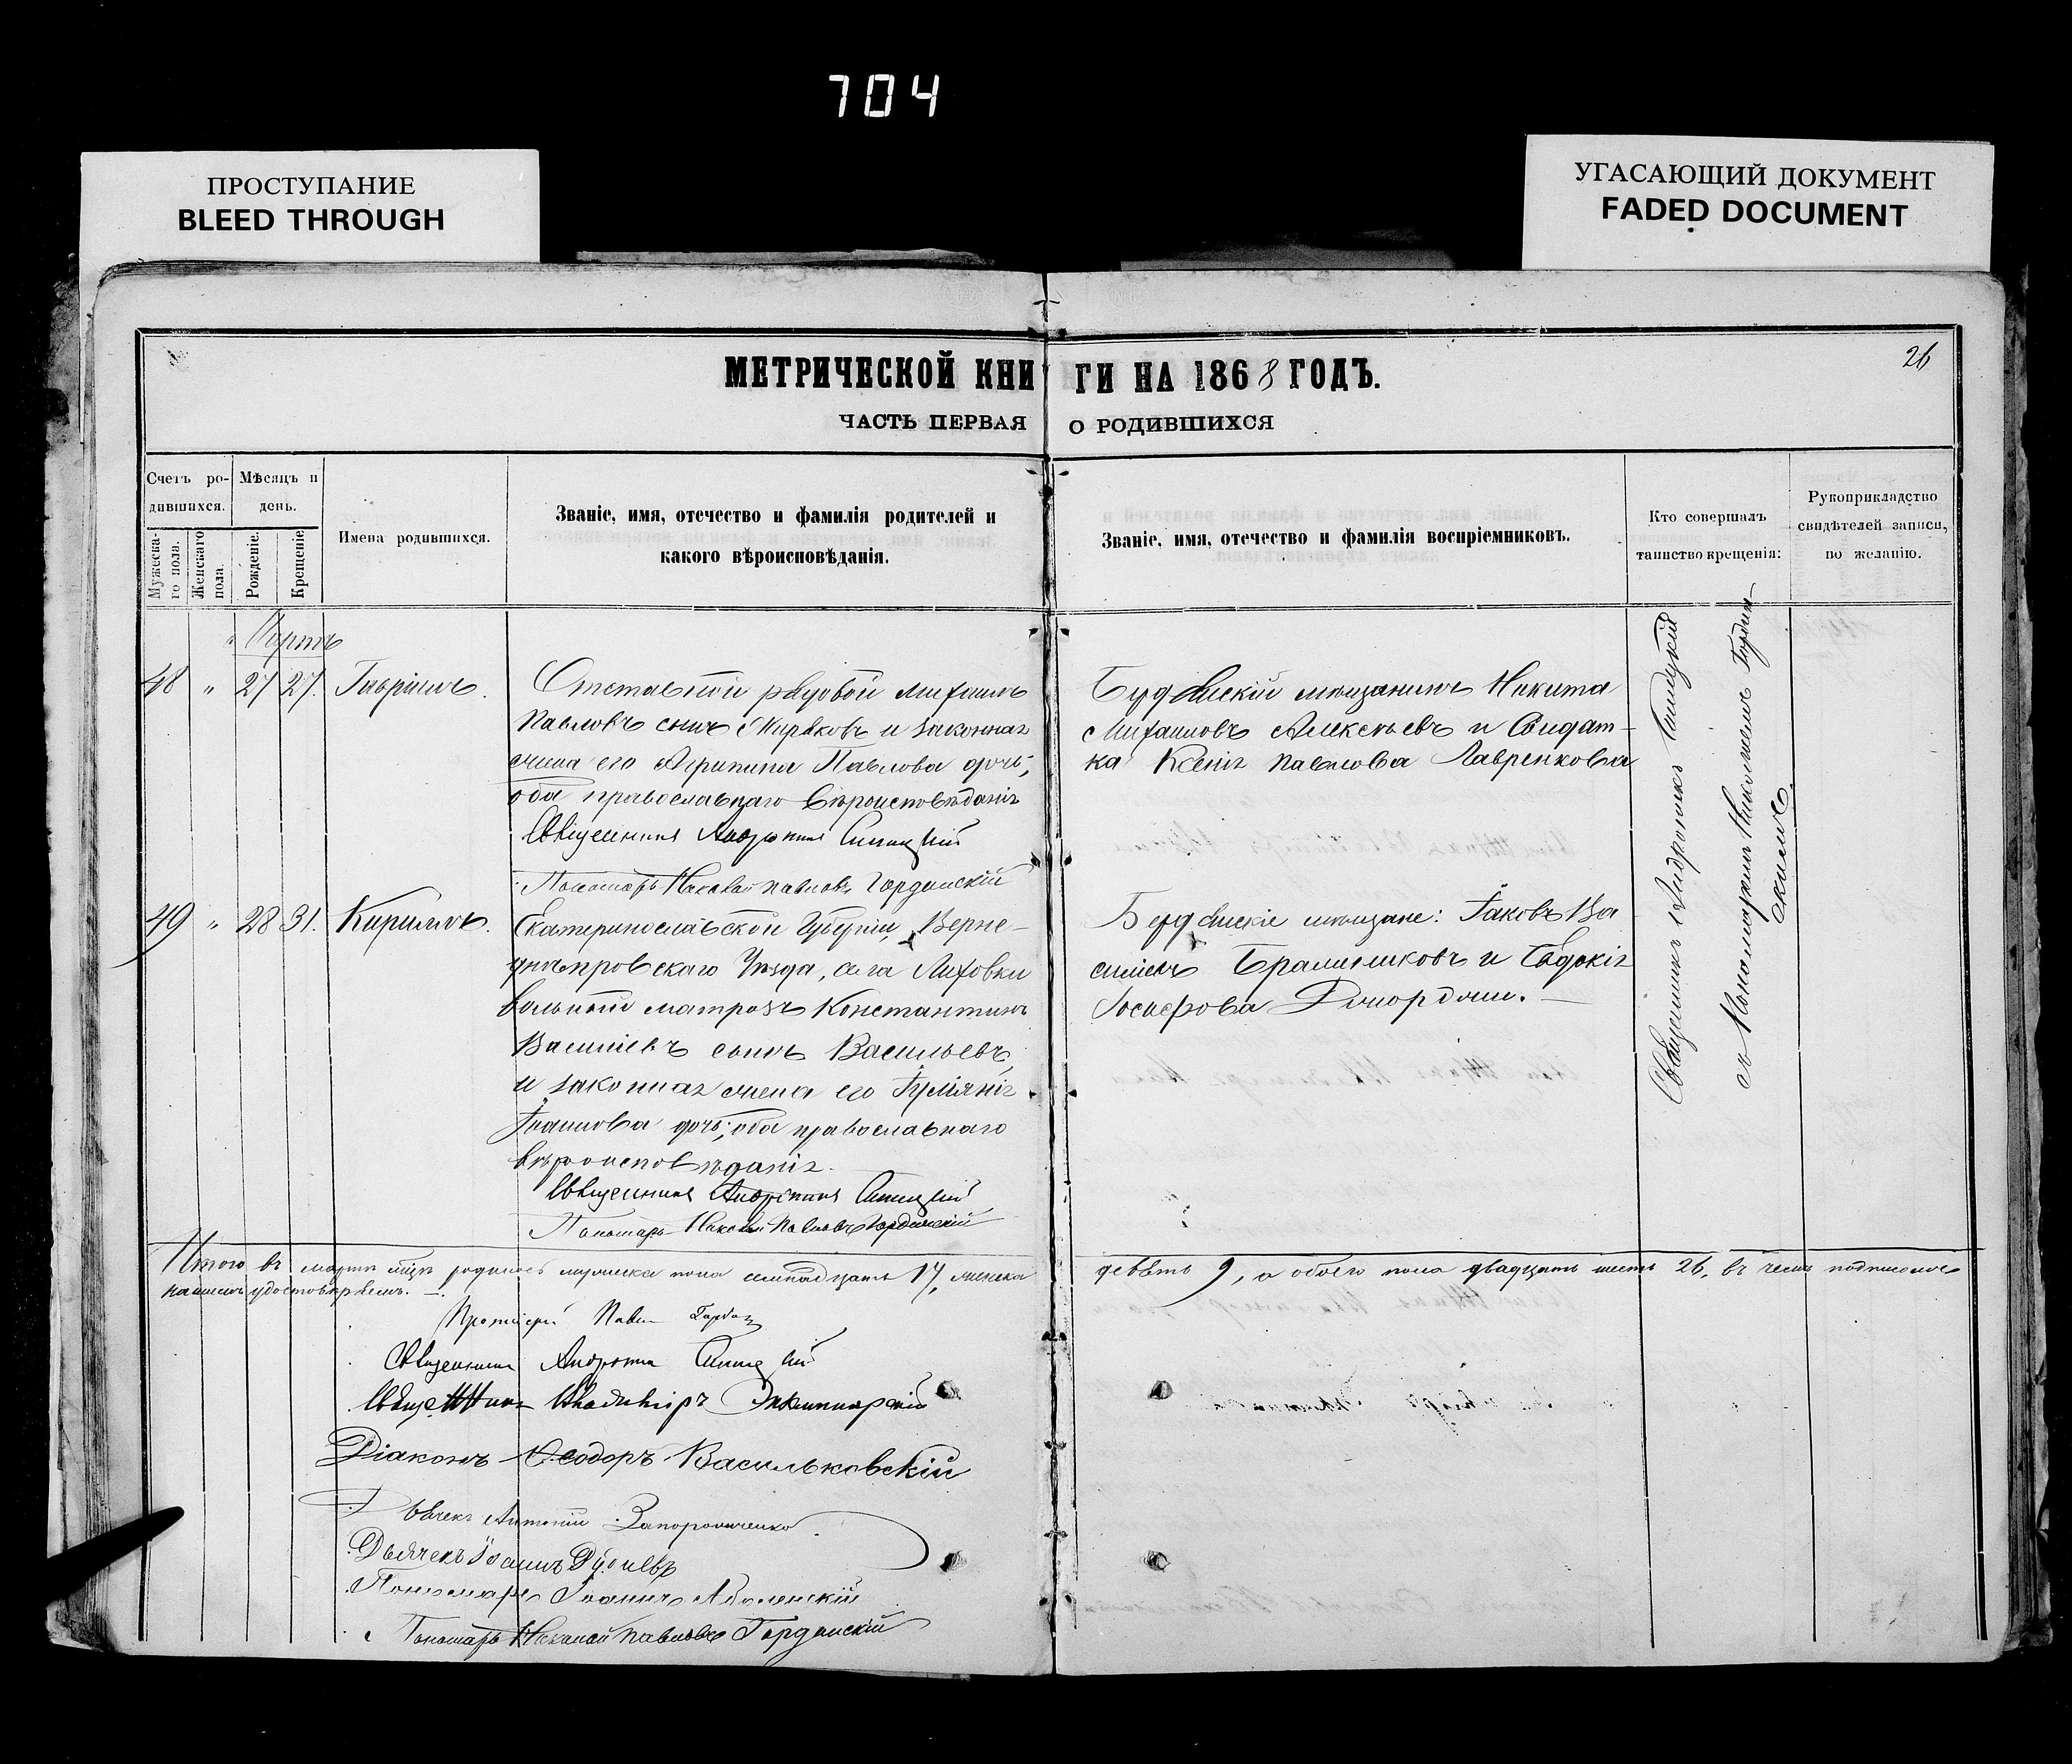 704
ПРОСТУПАНИЕ
BLEED THROUGH
УГАСАЮЩИЙ ДОКУМЕНТ
FADED DOCUMENT
26
МЕТРИЧЕСКОЙ КНИГИ НА 1868 ГОДЪ.
ЧАСТЬ ПЕРВАЯ О РОДИВШИХСЯ
Счетъ ро-
дившихся.
Мужеска-
го пола.
Женскаго
пола.
Мѣсяцъ и
день.
Рожденіе.
Крещеніе.
Имена родившихся.
Званіе, имя, отечество и фамилія родителей и
какого вѣроисповѣданія.
Званіе, имя, отечество и фамилія воспріемниковъ.
Кто совершалъ
таинство крещенія:
Рукоприкладство
свидѣтелей записи,
по желанію.
Мартъ
48 " 27 27. Гавріилъ.
Отставной рядовой Михаилъ
Павловъ сынъ и законная
жена его Агрипина Павлова дочь,
оба православнаго вѣроисповѣданія
Священникъ Андроникъ
Пономарь Николай Павловъ Гординскій
Бердянскій мѣщанинъ Никита
Михаиловъ Алексѣевъ и Солдат-
ка Ксенія Павлова Лавренкова
49 " 28 31. Кирилъ.
Екатеринославской Губерніи, Верхне-
днѣпровскаго Уѣзда, села Лиховки
вольный матрозъ Константинъ
Василіевъ сынъ Васильевъ,
и законная жена его Іуліянія
Іоаннова дочь, оба православнаго
вѣроисповѣданія.
Священникъ Андроникъ
Пономарь Николай Павловъ Гординскій
Бердянскіе мѣщане: Іаковъ Ва
силіевъ и Евдокія
Іосифова
Священникъ Андроникъ
съ Пономаремъ Николаемъ Гордин-
скимъ.
Итого въ мартѣ мцѣ родилось мужеска пола семнадцать 17, женска девять 9, а обоего пола двадцать шесть 26, въ чемъ подписомъ
нашимъ удостовѣряемъ.
Протоіерей
Священникъ Андроникъ
Священникъ Владиміръ
Діаконъ Ѳеодоръ Васильковскій
Дьячекъ Антоній
Дьячекъ Іоаннъ
Пономарь Іоаннъ
Пономарь Николай Павловъ Гординскій